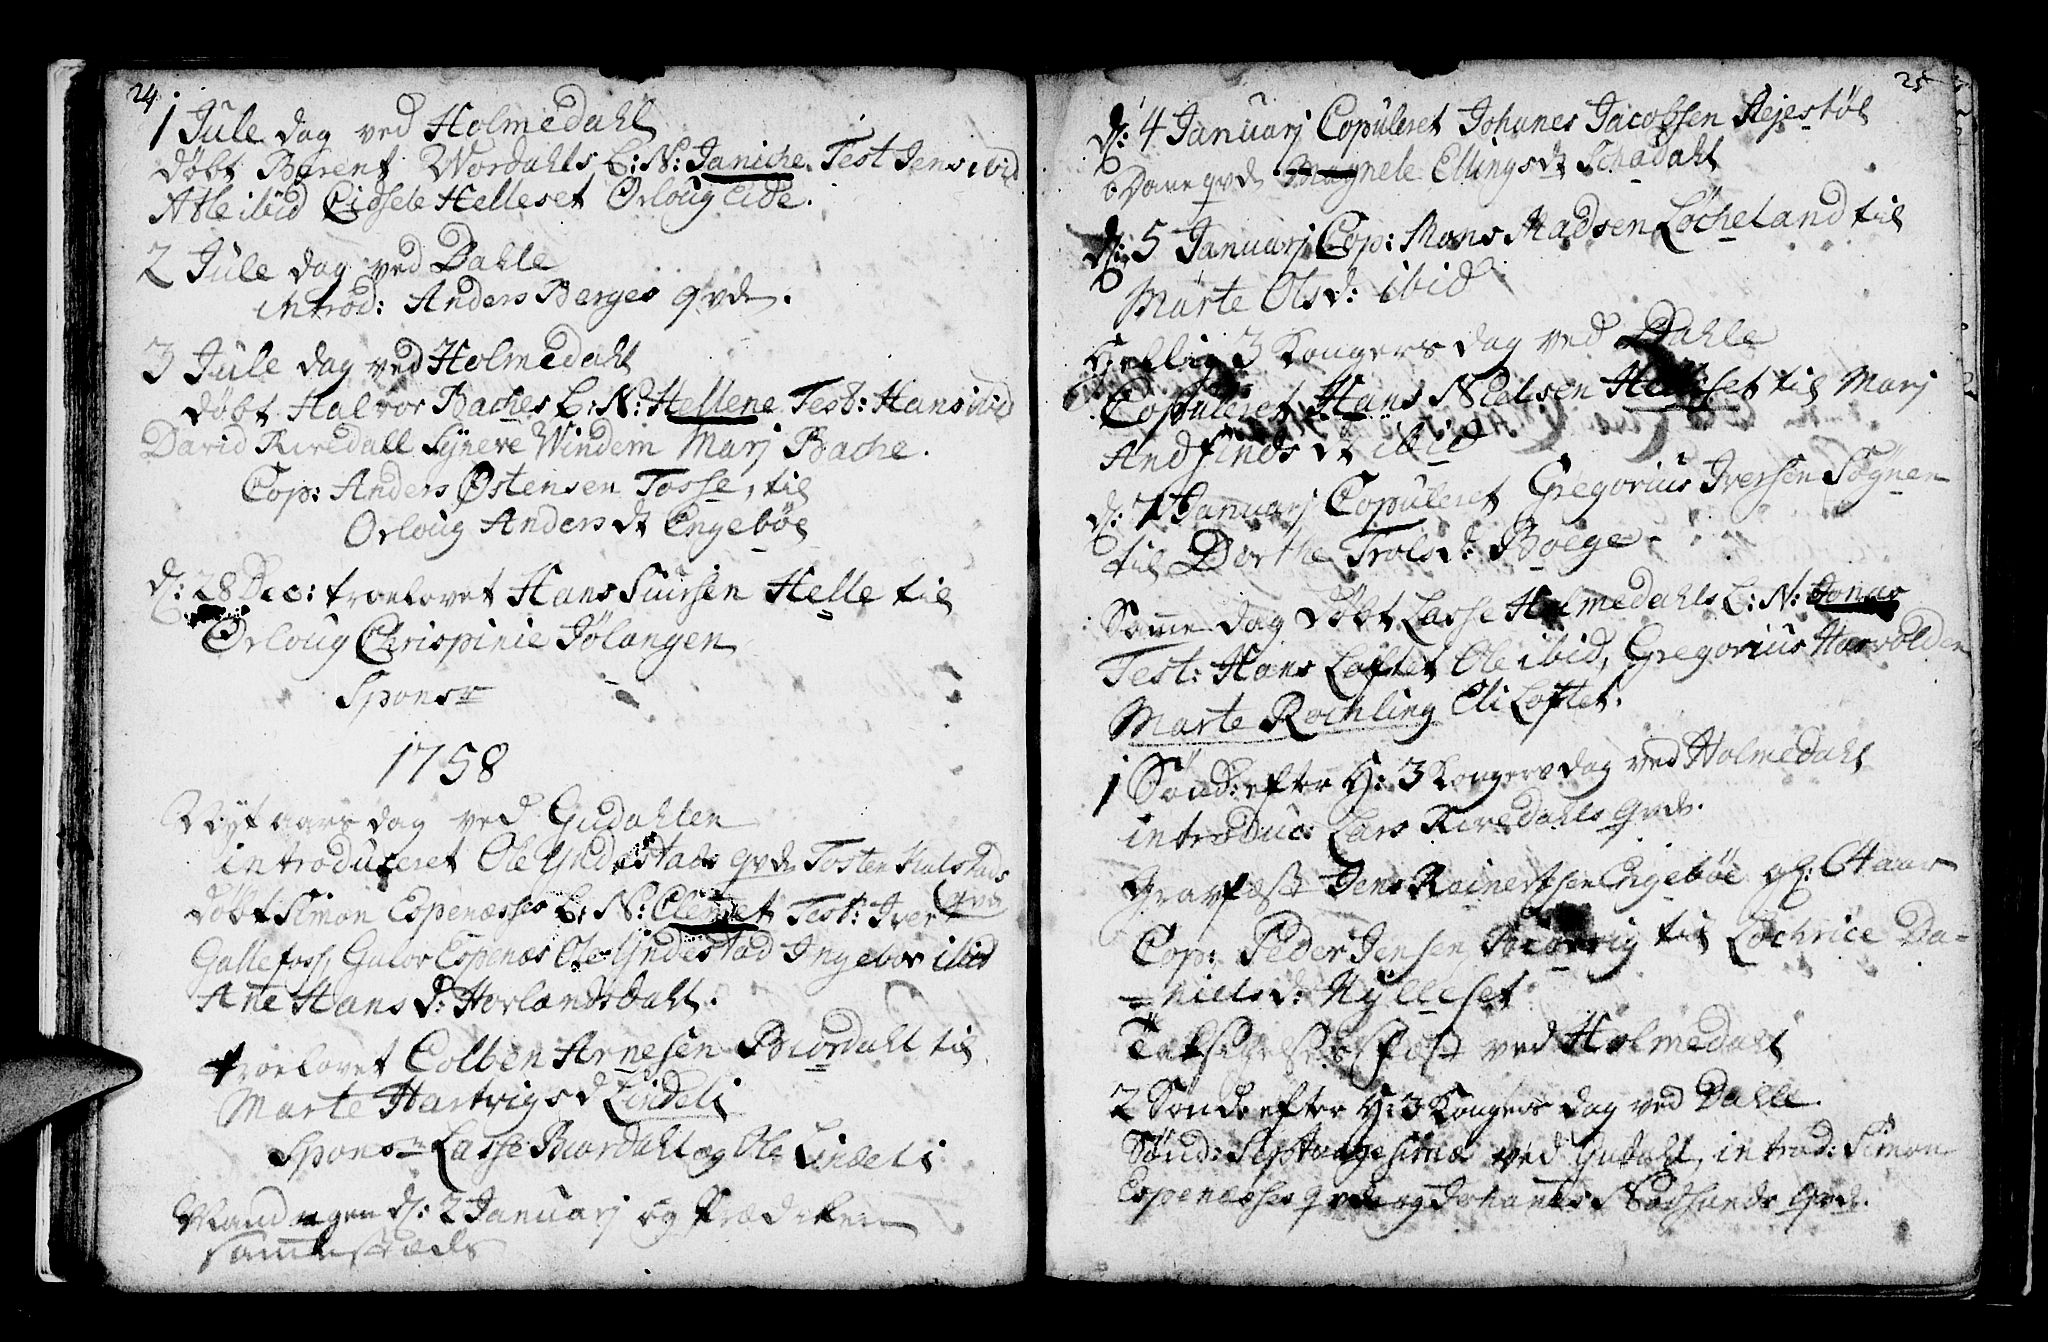 24.
1 Jule dag ved Holmedahl
døbt Berent Wordahls B: N: Janiche. Test Jens ibid
Atle ibid Eidsele Helleset Orloug Eide.
2 Jule dag ved Dahle
introd: Anders Berges qvde.
3 Jule dag ved Holmedahl
døbt Halvor Baches B: N: Hellene Test: Hans ibid
David Rivedall Syneve Windem Marj Bache.
Cop: Anders Østensen Tosse, til
Orloug Anders dt Engebøe
d: 28 Dec: troelovet Hans Helle til
Orloug Chrispinie Jølangen
Sponsr
1758
Nytaars dag ved Gudahlen
introduceret Ole Yndestads qvde Tosten
qvde
døbt Simon Espenesses B: N: Test: Iver
Gallefoss, Espenæs Ole Yndestad Ingebor ibid
Ane Hans d: Horlandsdahl.
troelovet Colben Arnesen Biordahl til
Marte Hartvigsd Lindeli
Sponsr Lasse Biordahl og Ole Lindeli
Mandagen d: 2 Januarj og Prædiken
sammestæds
25
d: 4 Januarj Copuleret Johanes Jacobsen til
Daneqvde Magnele Ellingsdt Schadahl
d: 5 Januarj Cop: Mons Madsen Løcheland til
Marte Olsd: ibid
Hellig 3 Kongers dag ved Dahle
Copuleret Hans Nielsen Helleset til Marj
Andfindsdt ibid
d: 7 Januarj Copuleret Gregorius Iversen Sognen
til Dorthe Trolsd: Boege
Samme dag døbt Lasse Holmedahls B: N: Jonas
Test: Hans Løftet Ole ibid, Gregorius Harvolden
Marte Rochling Eli Løftet.
1 Sønd: efter H: 3 Kongers dag ved Holmedahl
introduc Lars Rivedahls qvde.
Gravfæst Jens Rainertsen Engebøe gl: aar
Cop: Peder Jensen til Lochrice Da-
=nielsd: Hylleset
Taksigelses fæst ved Holmedahl
2 Sønd: efter H: 3 Kongers dag ved Dahle.
Sønd: Septuagesima ved Gudahl, introd: Simon
Espenesses qvde og Johannes qvde.